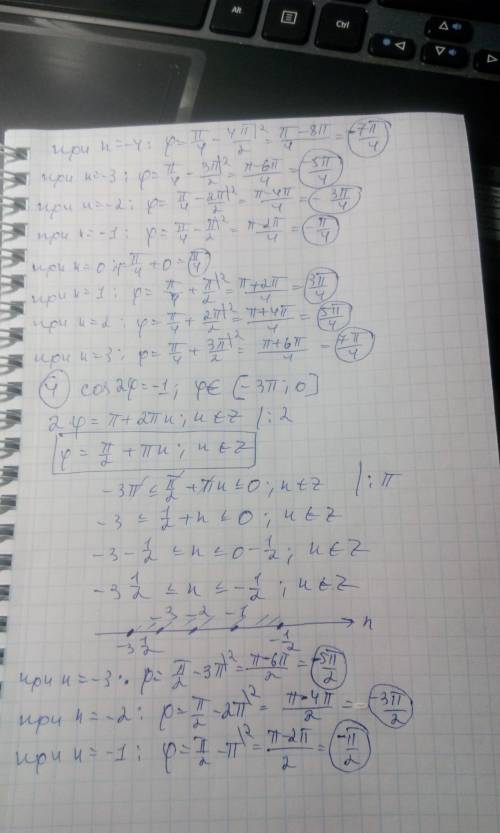 Alt
Ctrl
при n=-4: φ=π/4-4π/2|²=π-8π/4=-7π/4
при n=-3: φ=π/4-3π/2|²=π-6π/4=-5π/4
при n=-2: φ=π/4-2π/2|²=π-4π/4=-3π/4
при n=-1: φ=π/4-π/2|²=π-2π/4=-π/4
при n=0: φ=π/4+0=π/4
при n=1: φ=π/4+π/2|²=π+2π/4=3π/4
при n=2: φ=π/4+2π/2|²=π+4π/4=5π/4
при n=3: φ=π/4+3π/2|²=π+6π/4=7π/4
4 cos2φ=-1; φ∈[-3π;0]
2φ=π+2πn; n∈Z |:2
φ=π/2+πn; n∈Z
-3π≤π/2+πn≤0; n∈Z |:π
-3≤1/2+n≤0; n∈Z
-3-1/2≤n≤0-1/2; n∈Z
-3 1/2≤n≤-1/2; n∈Z
-3 -2 -1 n
-3 1/2 -1/2
при n=-3: φ=π/2-3π|²=π-6π/2=-5π/2
при n=-2: φ=π/2-2π|²=π-4π/2=-3π/2
при n=-1: φ=π/2-π|²=π-2π/2=-π/2